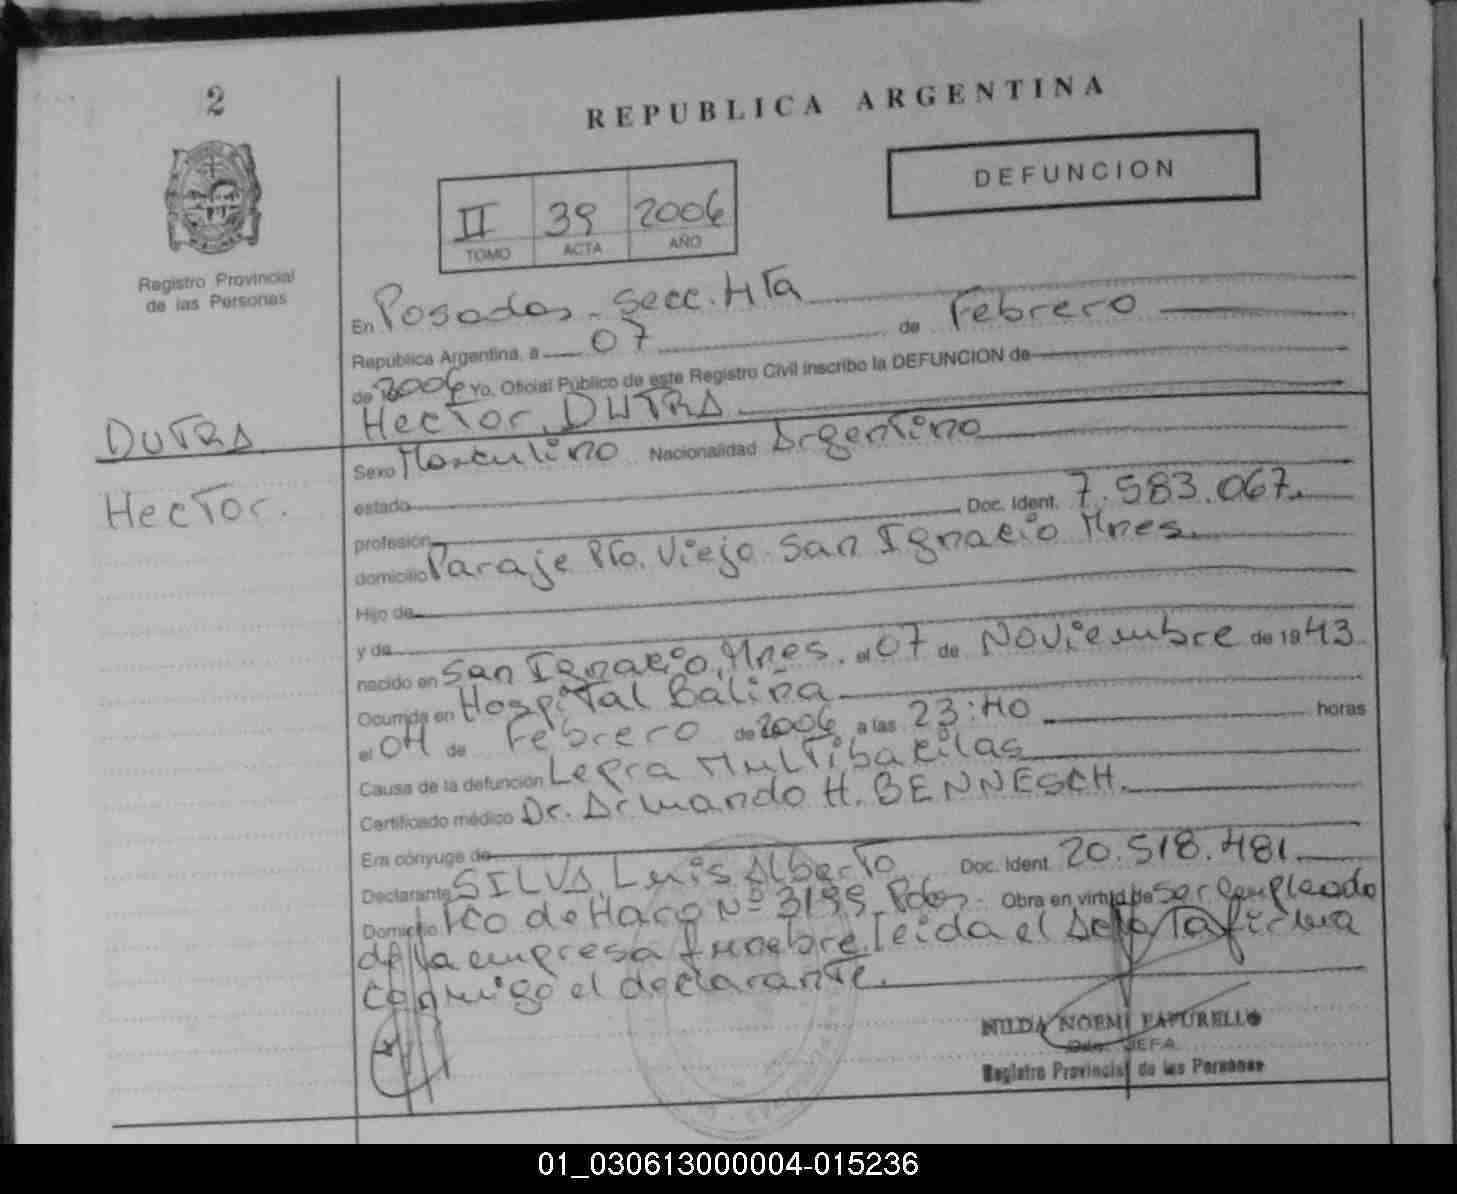 2
REPUBLICA ARGENTINA
DEFUNCION
II 39 2006
TOMO ACTA AÑO
Registro Provincial
de las Personas
En Posadas - Secc. 4Ta
República Argentina, a 07 de Febrero
de 2006 Yo, Oficial Público de este Registro Civil inscribo la DEFUNCION de
Hector DUTRA
DUTRA
Hector.
Sexo Masculino Nacionalidad Argentino
estado
profesión Doc. Ident. 7.583.067.
domicilio Paraje Pto. Viejo. San Ignacio Mnes.
Hijo de
y de
nacido en San Ignacio, Mnes. el 07 de Noviembre de 1943
Ocurrida en Hospital Baliña
el 04 de Febrero de 2006 a las 23:40 horas
Causa de la defunción Lepra Multibacilas
Certificado médico Dr. Armando H. BENNESCH.
Era cónyuge de
Declarante SILVA, Luis Alberto Doc. Ident. 20.518.481
Domicilio Fco de Haro Nº 3199 Pdas. Obra en virtud de ser empleado
de la empresa funebre. Leida el Acta la firma
conmigo el declarante.
NILDA NOEMI
JEFA
Registro Provincial de las Personas
01_030613000004-015236